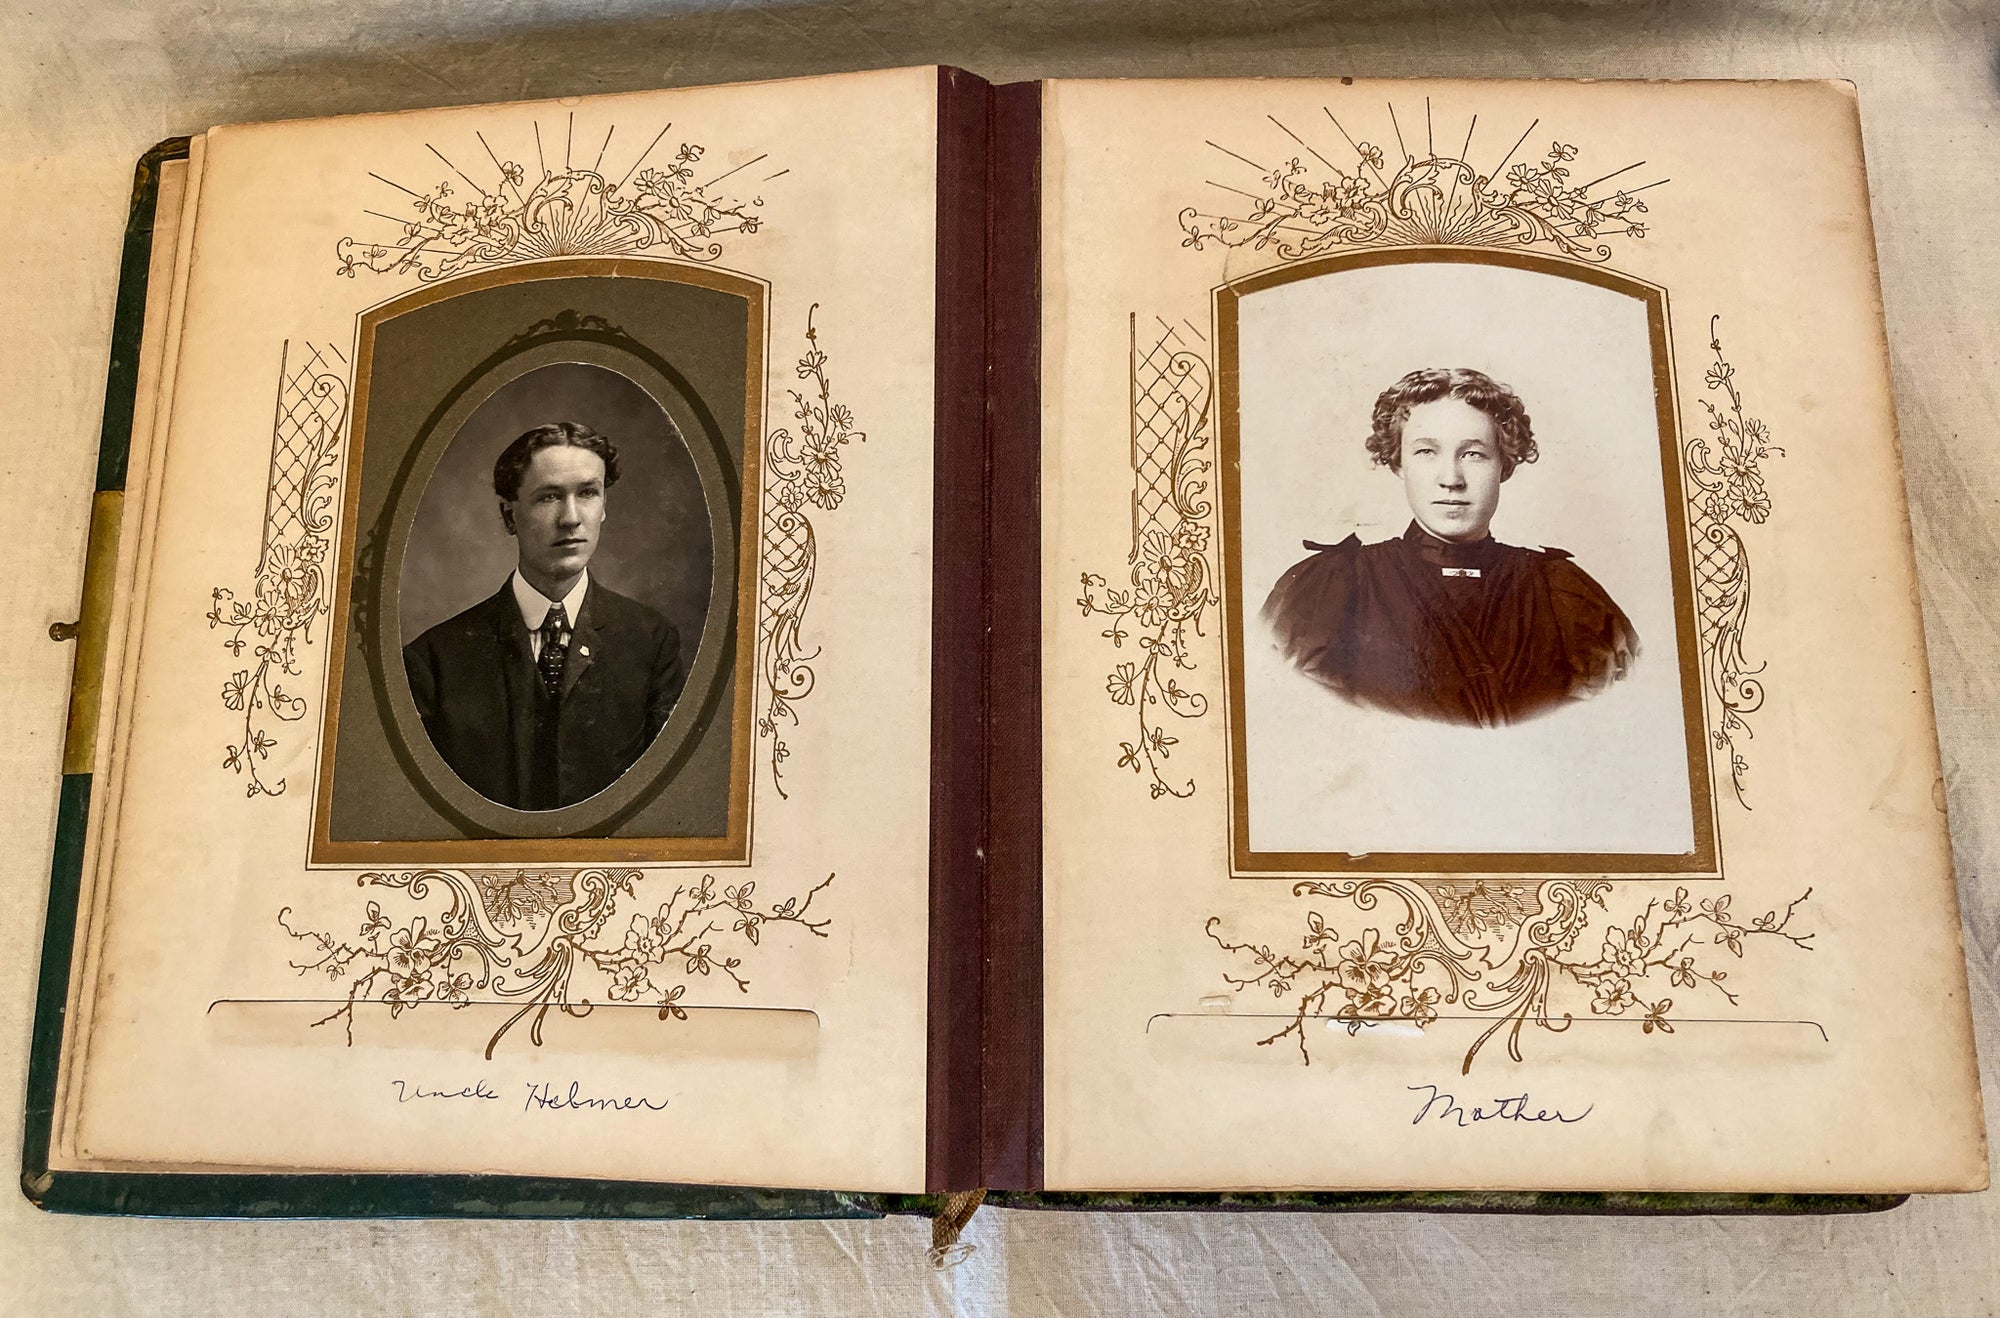 Uncle Hebmer
Mother